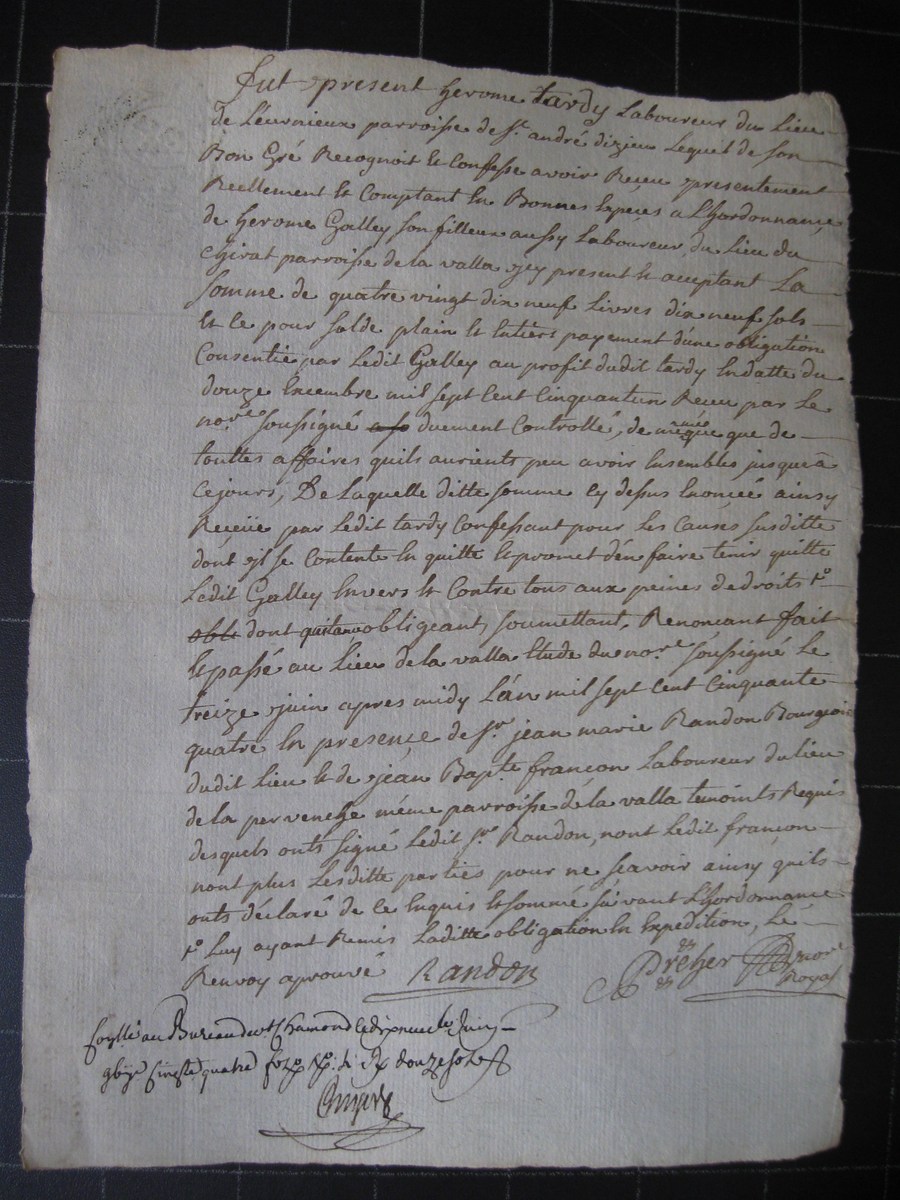 fut present herome tardy Laboureur du Lieu
de Leuvrieux parroisse de St andré dizieu Lequel de son
Bon Gré Recognoit Et Confesse avoir Receu presentement
Reellement Et Comptant En Bonnes Especes a Lhordonnance
de herome Galley son filleux aussy Laboureur du Lieu du
Chirat parroisse de la valla jcy present Et aceptant La
somme de quatre vingt dix neuf Livres dix neuf sols
Et ce pour solde plain Et Entiers payement d'une obligation
Consentie par Ledit Galley au profit dudit tardy En datte du
douze decembre mil sept Cent Cinquantun Receu par Le
nore soussigné duement Controllé, de même que de
touttes affaires quils aurients peu avoir Ensembles jusqu'a
Cejours, De Laquelle ditte somme Cy dessus Enoncée ainsy
Receüe par Ledit tardy Confessant pour Les Causes susditte
dont jl se Contente En quitte Et promet d'en faire tenir quitte
Ledit Galley Envers Et Contre tous aux peines de droits
obli dont quitance obligeant, soumettant, Renonçant fait
Et passé au Lieu de la valla Etude du nore soussigné Le
treize juin apres midy L'an mil sept Cent Cinquante
quatre En presence de Sr jean marie Randon Bourgeois
dudit Lieu Et de jean Bapte françon Laboureur du Lieu
de la pervenche même parroisse de la valla temoints Requis
desquels onts signé Ledit Sr Randon, nont Ledit françon
nont plus Lesditte parties pour ne scavoir ainsy quils
onts déclaré de ce Enquis Et sommé suivant L'hordonnance
Luy ayant Remis Laditte obligation En Expedition, Le
Renvoy aprouvé
Randon
Preher nore
Royal
au Bureau de St Chamond Le dix neuf Juin
quatre douze sols